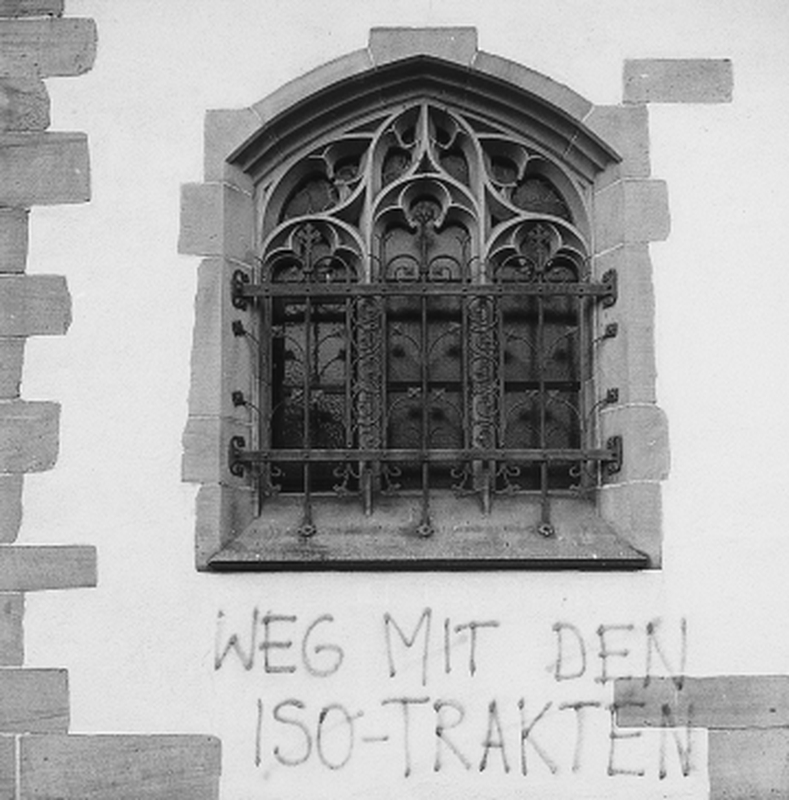 WEG MIT DEN
ISO-TRAKTEN